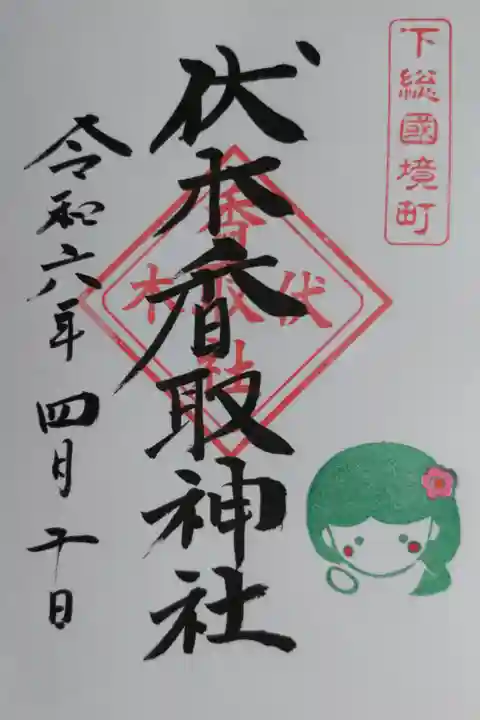 下総國境町
伏木香取神社
香取社
伏木
令和六年四月二十日